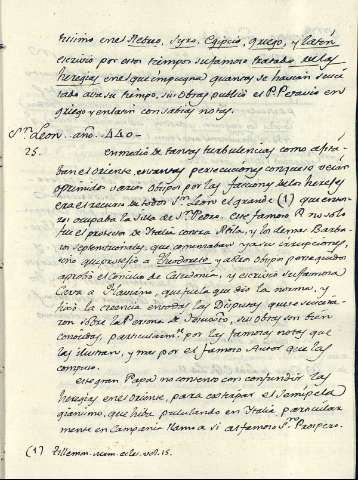 tisimo en el Hebreo, Syro, Egipcio, griego, y latin
escrivio por estos tiempos su famoso tratado de las
heregias en el que impugna quantas se havian susci
tado asta su tiempo, sus obras publicó el P. Petavio en
griego y en latin con sabias notas.
Sn. Leon. año. 440.
25. en medio de tantas turbulencias como agita
ban el oriente, en tantas persecuciones con que se veian
oprimidos varios obispos por las facciones de los hereges
era el recurso de todos Sn. Leon el grande (1) que enton
ces ocupaba la Silla de Sn. Pedro. este famoso P. no solo
fue el protector de Italia contra Atila, y los demas Barba
ros septentrionales, que comenzaban ya sus irrupciones,
sino que protegió a Theodoreto, y a otros obispos perseguidos
aprobó el Concilio de Calcedonia, y escrivio su famosa
Carta a Flaviano, que fue la que dio la norma, y
fixó la creencia en todas las Disputas que se suscita
ron sobre la Persona de Jesuchto, sus obras son bien
conocidas, particularmte. por las famosas notas que
las ilustran, y mas por el famoso Autor que las
compuso.
este gran Papa no contento con confundir las
heregias en el oriente, para extirpar el semipela
gianismo, que hiba pululando en Italia particular
mente en Campania llamo a si al famoso Sn. Prospero.
(1) Tillemon. mem. ecles. vol. 15.